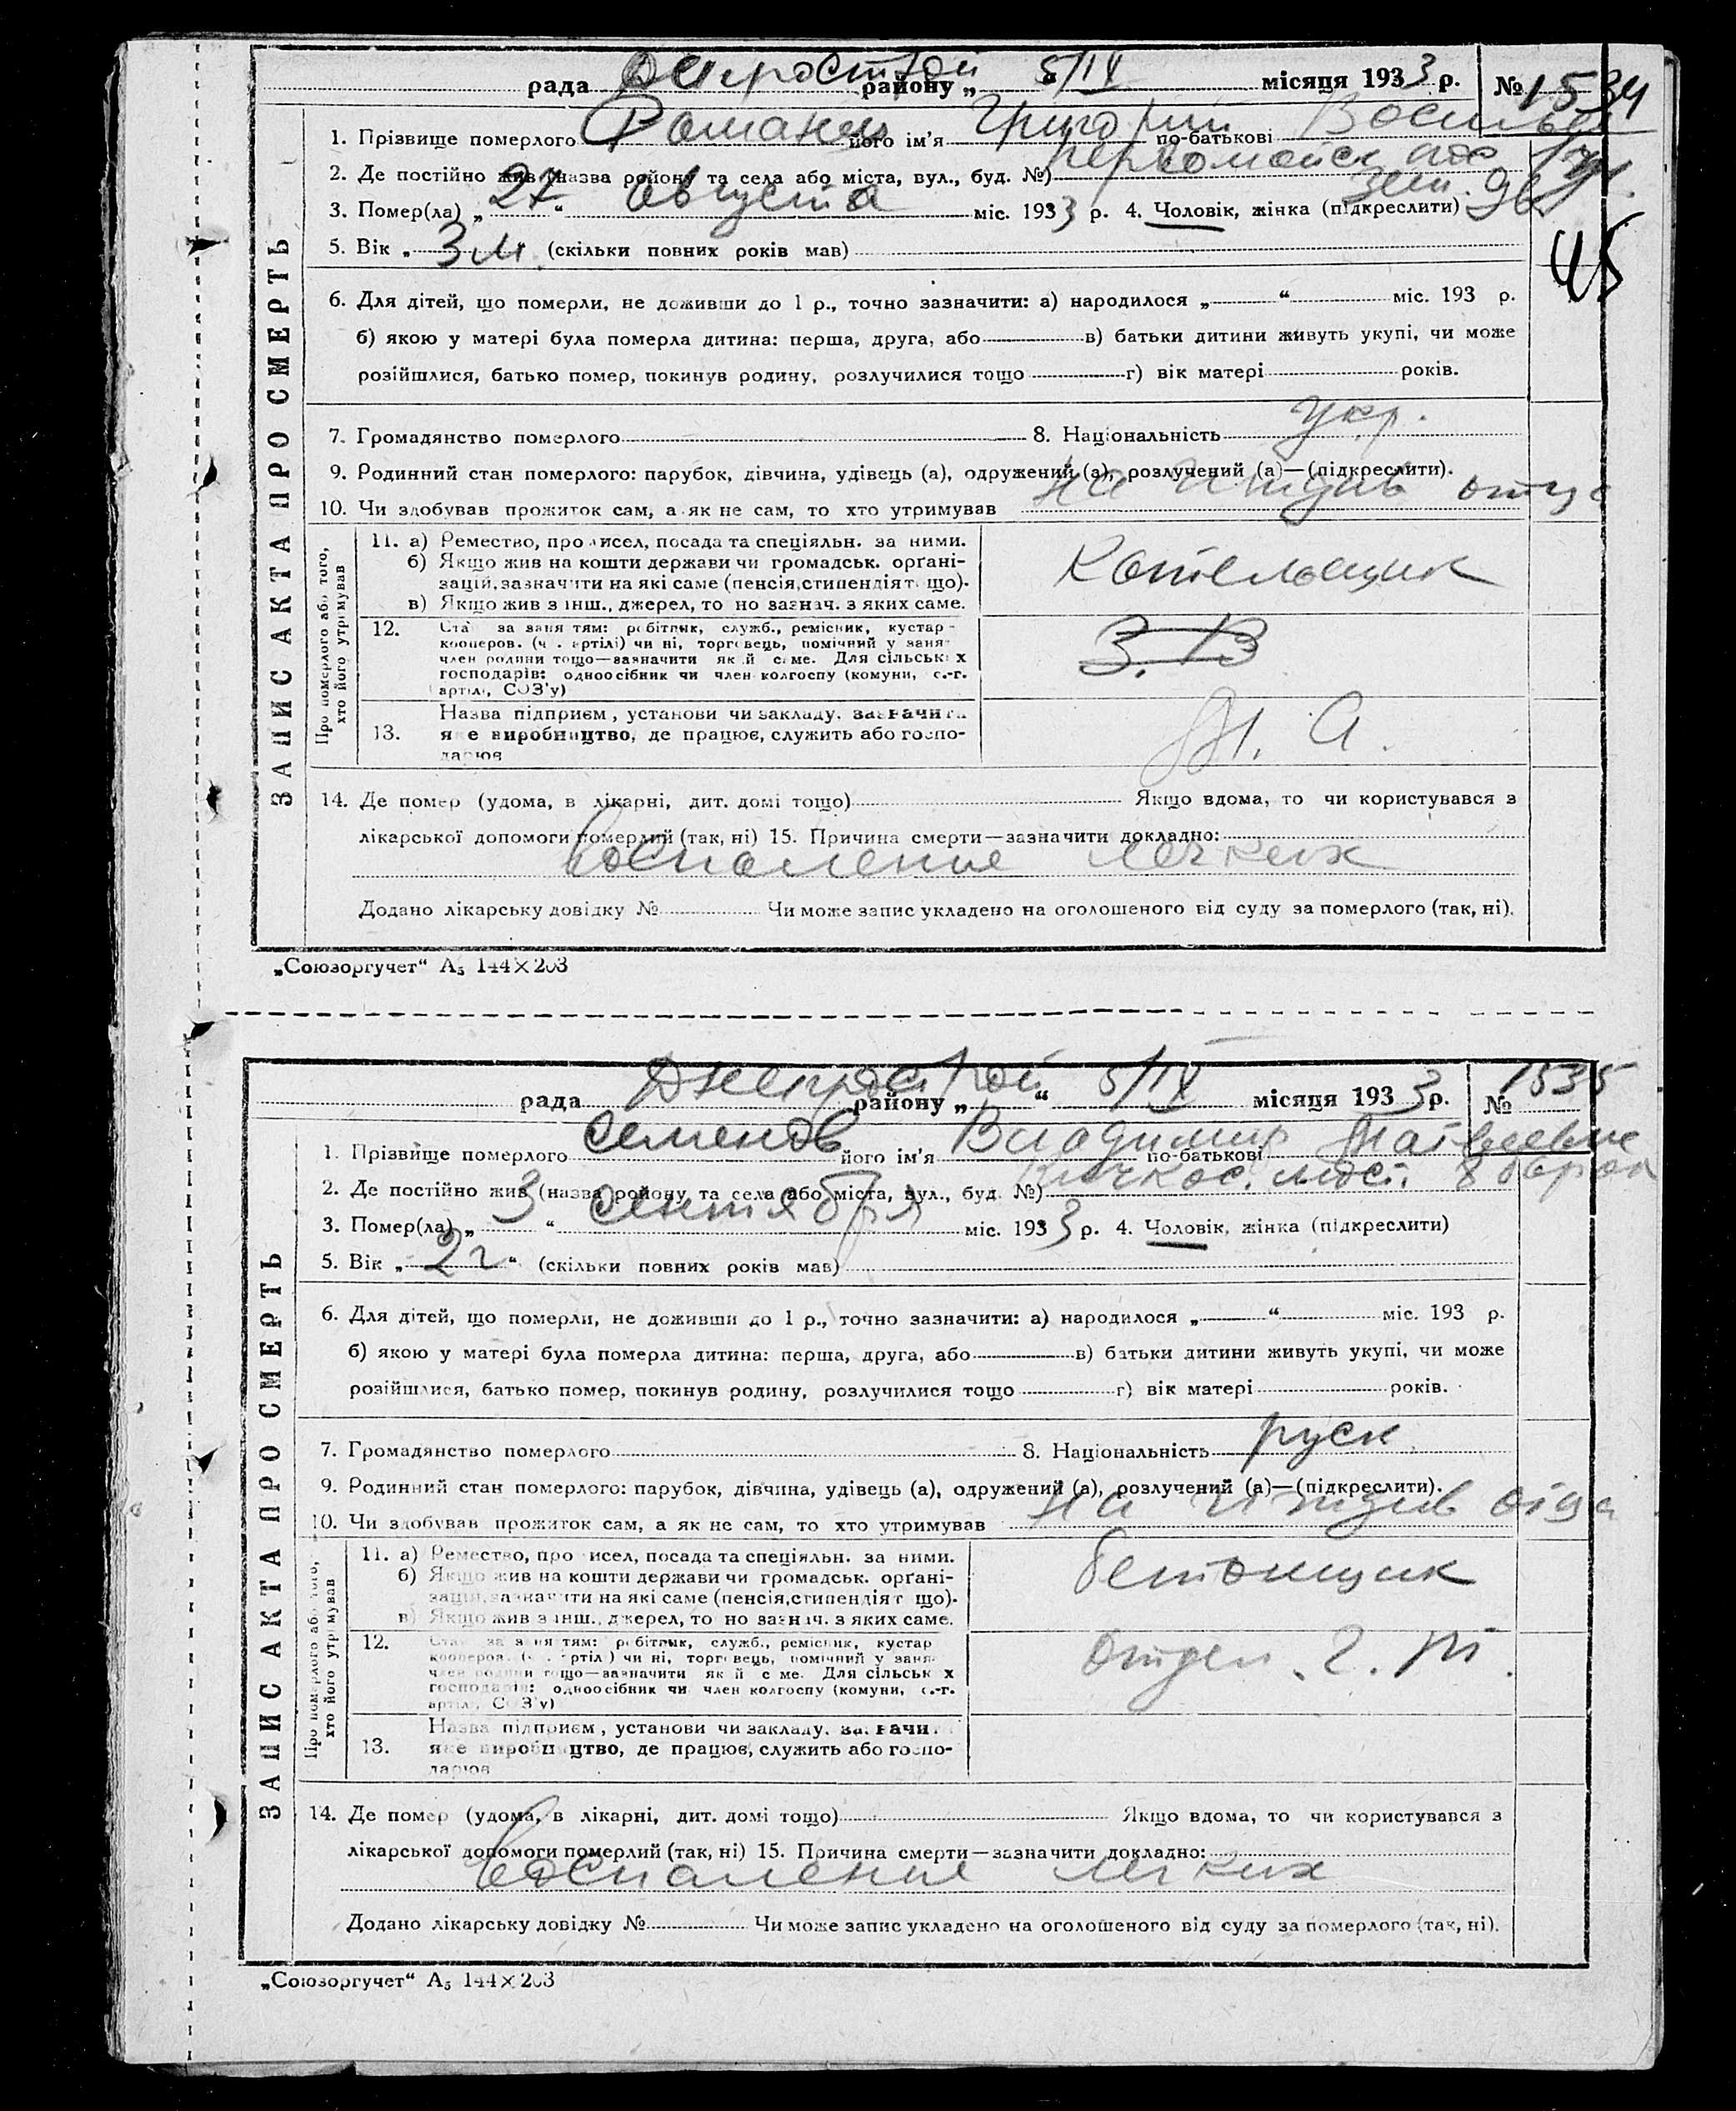 Днепрострой
рада району „ 5/IX місяця 1933 р. № 1534
1. Прізвище померлого Романец його ім'я Григорий по-батькові Васильев
2. Де постійно жив (назва району та села або міста, вул., буд. №) Первомайск
зем.
3. Помер(ла) „ 27 “ августа міс. 1933 р. 4. Чоловік, жінка (підкреслити)
45
5. Вік „ 3 м. (скільки повних років мав)
6. Для дітей, що померли, не доживши до 1 р., точно зазначити: а) народилося „ “ міс. 193 р.
б) якою у матері була померла дитина: перша, друга, або в) батьки дитини живуть укупі, чи може
розійшлися, батько помер, покинув родину, розлучилися тощо г) вік матері років.
7. Громадянство померлого 8. Національність укр.
9. Родинний стан померлого: парубок, дівчина, удівець (а), одружений (а), розлучений (а)—(підкреслити).
10. Чи здобував прожиток сам, а як не сам, то хто утримував на иждив отца
ЗАПИС АКТА ПРО СМЕРТЬ
Про померлого або того, хто його утримував
11. а) Ремество, промисел, посада та спеціяльн. за ними.
б) Якщо жив на кошти держави чи громадськ. орґані-
зацій, зазначити на які саме (пенсія, стипендія тощо).
в) Якщо жив з інш., джерел, то но зазнач. з яких саме.
Котельщик
12. Стан за заняттям: робітник, служб., ремісник, кустар-
кооперов. (ч. артілі) чи ні, торговець, помічний у занят
член родини тощо—зазначити який саме. Для сільських
господарів: одноосібник чи член колгоспу (комуни, с.-г.
артілі, СОЗ'у)
З. В
13. Назва підприєм, установи чи закладу, зазначити
яке виробництво, де працює, служить або госпо-
дарює
14. Де помер (удома, в лікарні, дит. домі тощо) Якщо вдома, то чи користувався з
лікарської допомоги померлий (так, ні) 15. Причина смерти—зазначити докладно:
Воспаление легких
Додано лікарську довідку № Чи може запис укладено на оголошеного від суду за померлого (так, ні).
„Союзоргучет“ А5 144×203
Днепрострой
рада району „ “ 5/IX місяця 1933 р. № 1535
1. Прізвище померлого Семенов його ім'я Владимир по-батькові Матвеевич
2. Де постійно жив (назва району та села або міста, вул., буд. №) Кичкас. мост. 8 барак
3. Помер(ла) „ 3 “ сентября міс. 1933 р. 4. Чоловік, жінка (підкреслити)
5. Вік „ 2 г “ (скільки повних років мав)
6. Для дітей, що померли, не доживши до 1 р., точно зазначити: а) народилося „ “ міс. 193 р.
б) якою у матері була померла дитина: перша, друга, або в) батьки дитини живуть укупі, чи може
розійшлися, батько помер, покинув родину, розлучилися тощо г) вік матері років.
7. Громадянство померлого 8. Національність русск
9. Родинний стан померлого: парубок, дівчина, удівець (а), одружений (а), розлучений (а)—(підкреслити).
10. Чи здобував прожиток сам, а як не сам, то хто утримував на иждив отца
ЗАПИС АКТА ПРО СМЕРТЬ
Про померлого або того, хто його утримував
11. а) Ремество, промисел, посада та спеціяльн. за ними.
б) Якщо жив на кошти держави чи громадськ. орґані-
зацій, зазначити на які саме (пенсія, стипендія тощо).
в) Якщо жив з інш., джерел, то но зазнач. з яких саме.
бетонщик
12. Стан за заняттям: робітник, служб., ремісник, кустар
кооперов. (ч. артілі) чи ні, торговець, помічний у заня-
член родини тощо—зазначити який саме. Для сільських
господарів: одноосібник чи член колгоспу (комуни, с.-г.
артілі, СОЗ'у)
отдел. г. т.
13. Назва підприєм, установи чи закладу, зазначити
яке виробництво, де працює, служить або госпо-
дарює
14. Де помер (удома, в лікарні, дит. домі тощо) Якщо вдома, то чи користувався з
лікарської допомоги померлий (так, ні) 15. Причина смерти—зазначити докладно:
Воспаление легких
Додано лікарську довідку № Чи може запис укладено на оголошеного від суду за померлого (так, ні).
„Союзоргучет“ А5 144×203